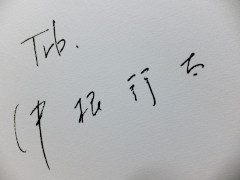 Trb.
伊根行太